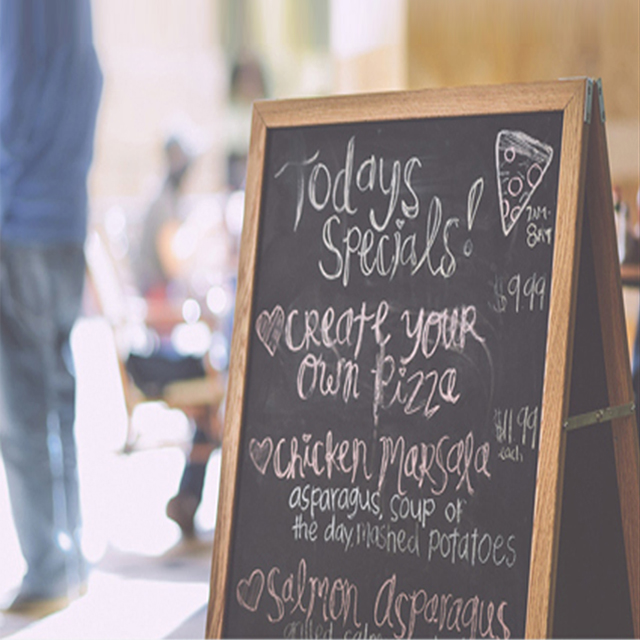 Todays
Specials!
7AM-
8AM
$9.99
Create your
own Pizza
$11.99
each
Chicken Marsala
asparagus, soup of
the day, mashed potatoes
Salmon Asparagus
grilled